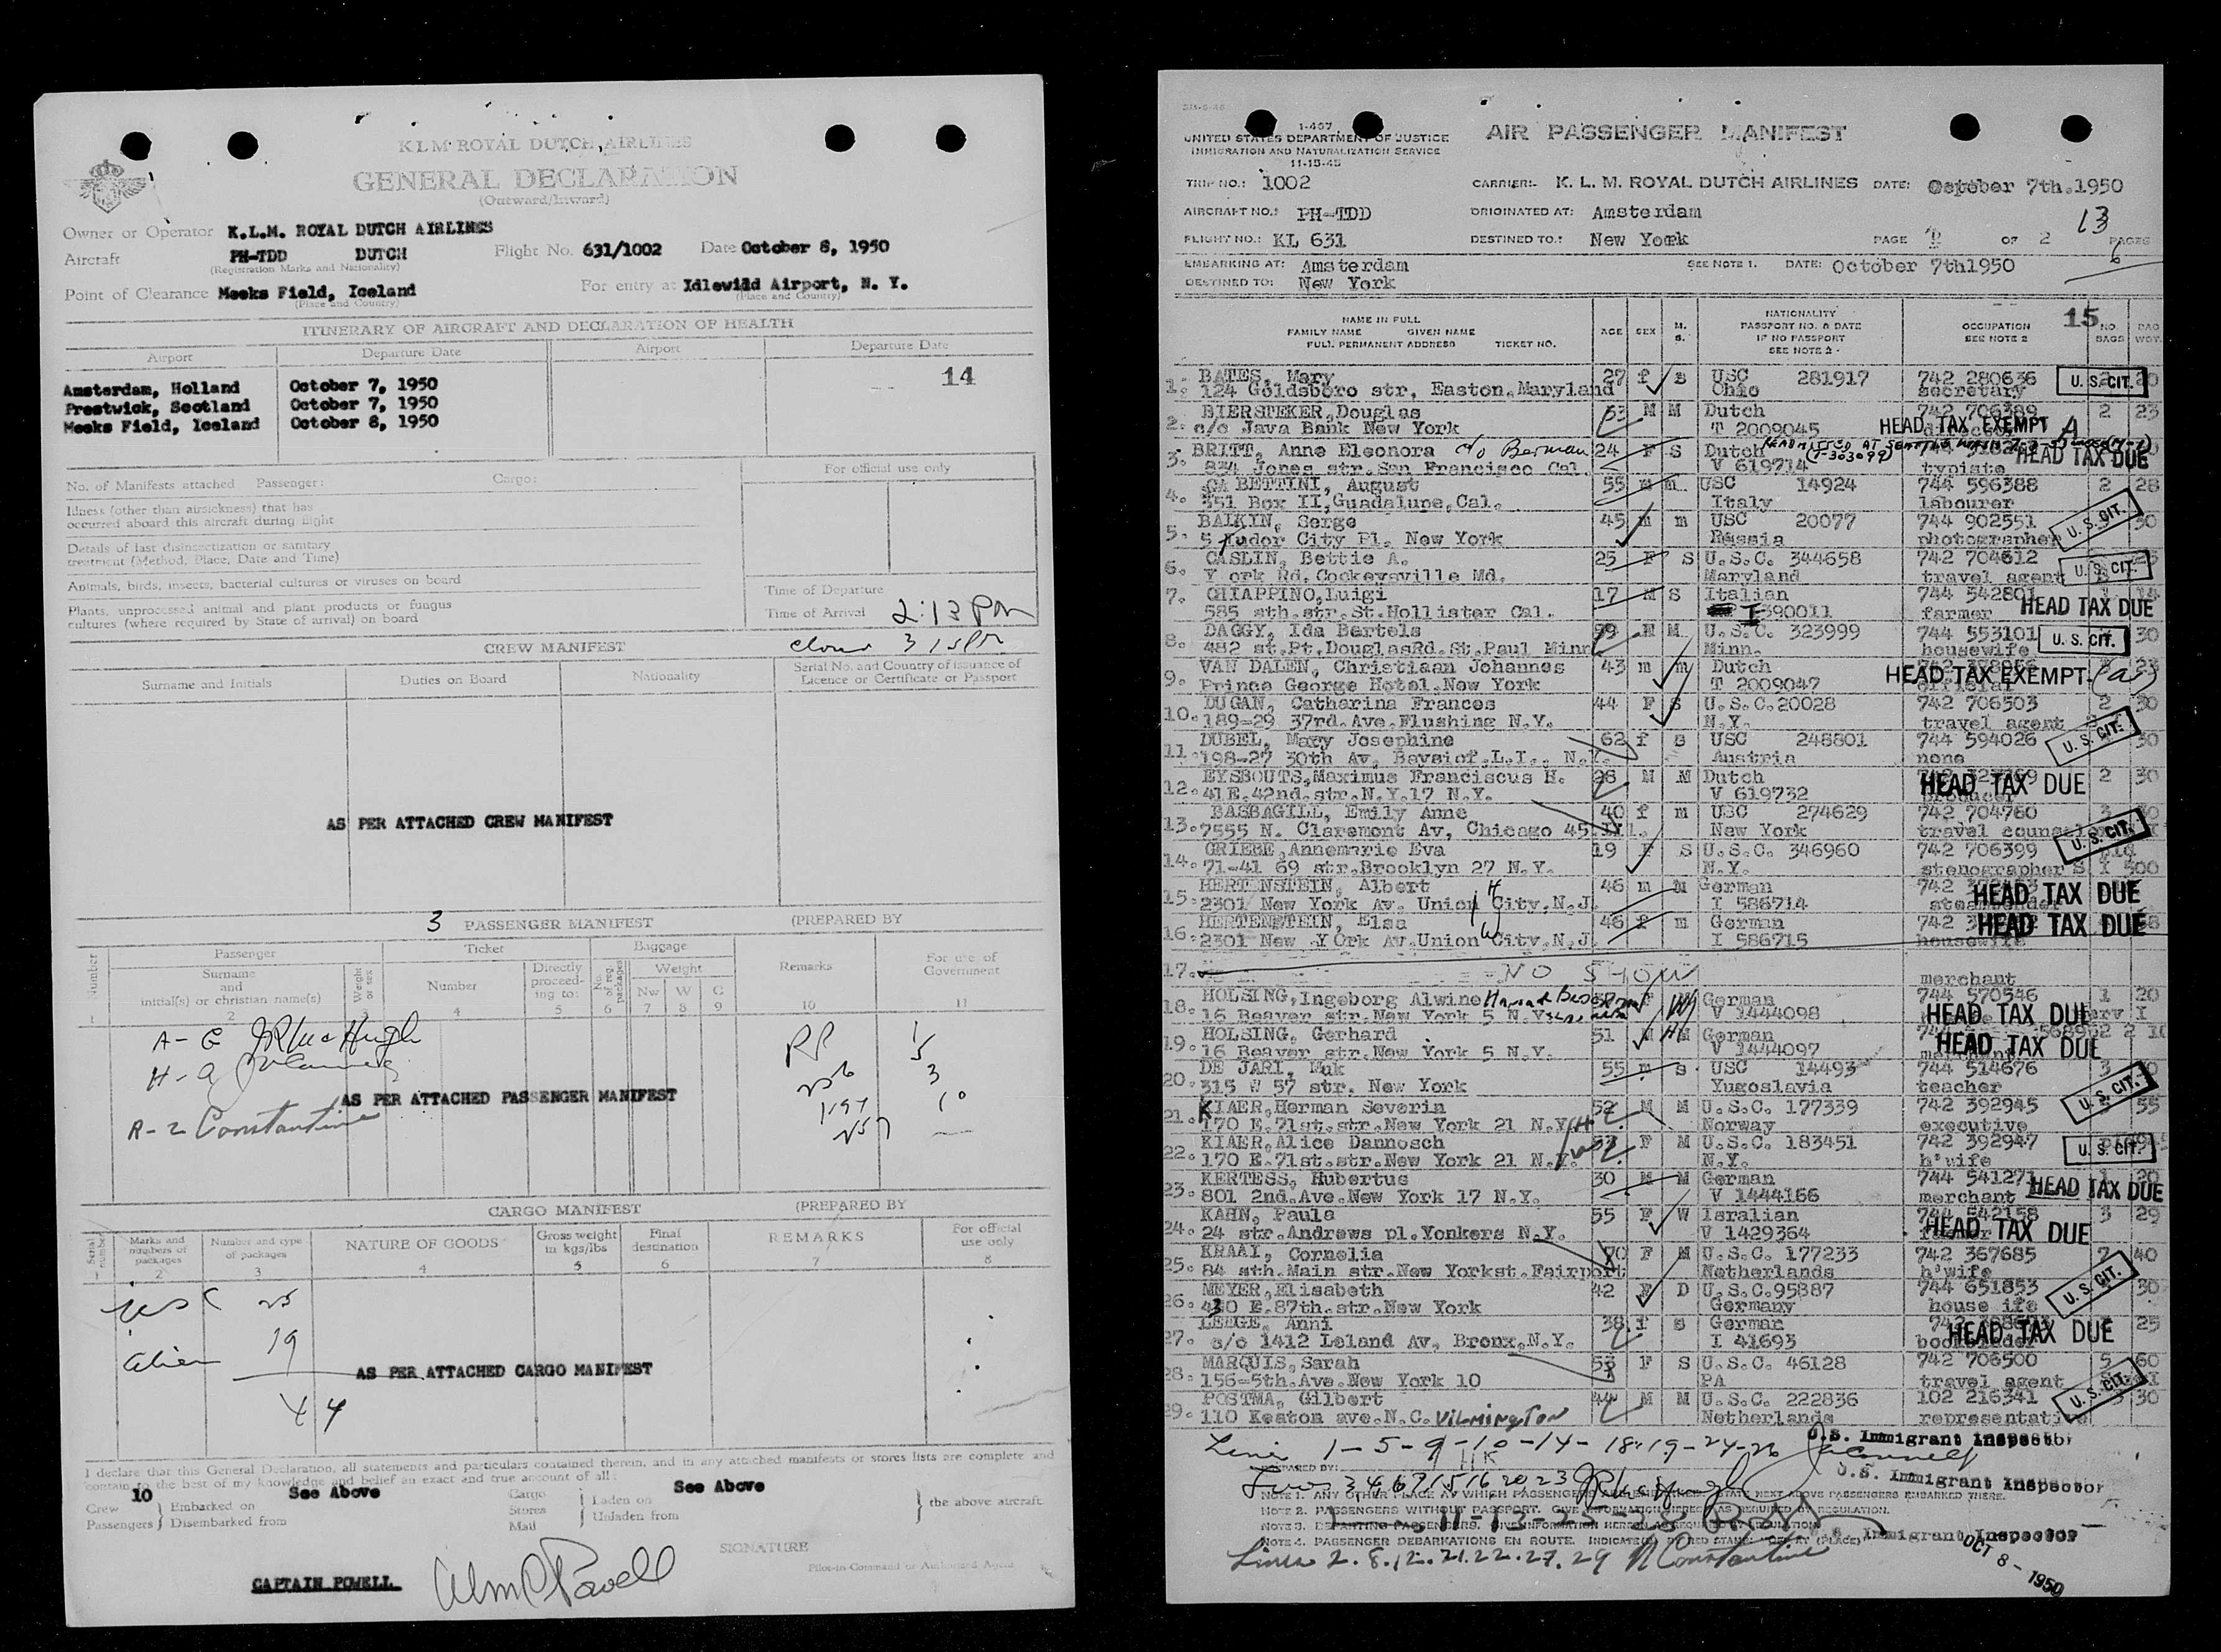 KLM ROYAL DUTCH AIRLINES
GENERAL DECLARATION
(Outward/Inward)
Owner or Operator K.L.M. ROYAL DUTCH AIRLINES
Aircraft PH-TDD DUTCH Flight No. 631/1002 Date October 8, 1950
(Registration Marks and Nationality)
Point of Clearance Meeks Field, Iceland For entry at Idlewild Airport, N. Y.
(Place and Country) (Place and Country)
ITINERARY OF AIRCRAFT AND DECLARATION OF HEALTH
Airport Departure Date Airport Departure Date
14
Amsterdam, Holland October 7, 1950
Prestwick, Scotland October 7, 1950
Meeks Field, Iceland October 8, 1950
For official use only
No. of Manifests attached Passenger: Cargo:
Illness (other than airsickness) that has
occurred aboard this aircraft during flight
Details of last disinsectization or sanitary
treatment (Method, Place, Date and Time)
Animals, birds, insects, bacterial cultures or viruses on board
Plants, unprocessed animal and plant products or fungus
cultures (where required by State of arrival) on board
Time of Departure
Time of Arrival 2:13 PM
CREW MANIFEST
Surname and Initials Duties on Board Nationality Serial No. and Country of issuance of
Licence or Certificate or Passport
AS PER ATTACHED CREW MANIFEST
3 PASSENGER MANIFEST (PREPARED BY
Number Passenger Ticket Baggage Remarks For use of
Government
Surname
and
initial(s) or christian name(s) Weight or sex Number Directly
proceed-
ing to: No. of reg. packages Weight
Nw W C
1 2 3 4 5 6 7 8 9 10 11
AS PER ATTACHED PASSENGER MANIFEST
R-2 Constantine
CARGO MANIFEST (PREPARED BY
Serial number Marks and
numbers of
packages Number and type
of packages NATURE OF GOODS Gross weight
in kgs/lbs Final
destination REMARKS For official
use only
1 2 3 4 5 6 7 8
USC 25
Alien 19
44
AS PER ATTACHED CARGO MANIFEST
I declare that this General Declaration, all statements and particulars contained therein, and in any attached manifests or stores lists are complete and
contain to the best of my knowledge and belief an exact and true account of all:
Crew 10 Embarked on See Above Cargo Laden on See Above
Passengers Disembarked from Stores Unladen from the above aircraft
Mail
SIGNATURE
Pilot-in-Command or Authorized Agent
CAPTAIN POWELL
1-467
UNITED STATES DEPARTMENT OF JUSTICE
IMMIGRATION AND NATURALIZATION SERVICE
11-15-45
AIR PASSENGER MANIFEST
TRIP NO.: 1002 CARRIER:- K. L. M. ROYAL DUTCH AIRLINES DATE: October 7th.1950
AIRCRAFT NO.: PH-TDD ORIGINATED AT: Amsterdam 13
FLIGHT NO.: KL 631 DESTINED TO.: New York PAGE 1 OF 2 PAGES
EMBARKING AT: Amsterdam SEE NOTE 1. DATE: October 7th1950
DESTINED TO: New York
NAME IN FULL
FAMILY NAME GIVEN NAME
FULL PERMANENT ADDRESS TICKET NO.
AGE SEX M. S.
NATIONALITY
PASSPORT NO. & DATE
IF NO PASSPORT
SEE NOTE 2
OCCUPATION
SEE NOTE 2
15
NO BAGS BAG WGT.
1. BATES, Mary 27 f s USC 281917 742 280636 U. S. CIT.
124 Goldsboro str, Easton,Maryland Ohio secretary
2. BIERSTEKER,Douglas 53 M M Dutch 742 706389 2 23
c/o Java Bank New York T 2009045 HEAD TAX EXEMPT A
3. BRITT, Anne Eleonora c/o Berman 24 F S Dutch
834 Jones str.San Francisco Cal. V 619714 typiste HEAD TAX DUE
4. BETTINI, August 55 m m USC 14924 744 596388 2 28
351 Box II,Guadalupe,Cal. Italy labourer
5. BALKYN, Serge 45 m m USC 20077 744 902551 U. S. CIT. 30
5 Tudor City Pl. New York Russia photographer
6. CASLIN, Bettie A. 25 F S U.S.C. 344658 742 704612
York Rd.Cockeysville Md. Maryland travel agent U. S. CIT.
7. CHIAPPINO,Luigi 17 M S Italian 744 542801 1 14
585 sth.str.St.Hollister Cal. I 390011 farmer HEAD TAX DUE
8. DAGGY, Ida Bertels 59 F M U.S.C. 323999 744 553101 U. S. CIT. 30
482 st.Pt.DouglasRd.St.Paul Minn Minn. housewife
9. VAN DALEN, Christiaan Johannes 43 m m Dutch
Prince George Hotel.New York T 2009047 HEAD TAX EXEMPT (a)
10. DUGAN, Catharina Frances 44 F S U.S.C.20028 742 706503 2 30
189-29 37rd.Ave.Flushing N.Y. N.Y. travel agent
11. DUBEL, Mary Josephine 62 f s USC 248801 744 594026 U. S. CIT. 30
198-27 30th Av, Baysiof.L.I., N.Y. Austria none
12. EYSBOUTS,Maximus Franciscus H. M M Dutch HEAD TAX DUE 2 30
41E.42nd.str.N.Y.17 N.Y. V 619732 producer
13. BASBAGILL, Emily Anne 40 f m USC 274629 742 704760
7555 N. Claremont Av, Chicago 45.Ill. New York U. S. CIT.
14. GRIEBE,Annemarie Eva 19 F S U.S.C. 346960 742 706399
71-41 69 str.Brooklyn 27 N.Y. N.Y. stenographer
15. HERTENSTEIN, Albert 46 m M German HEAD TAX DUE
2301 New York Av. Union City.N.J. I 586714
16. HERTENSTEIN, Elsa 46 f m German HEAD TAX DUE
2301 New York Av.Union City.N.J. I 586715 housewife
17. NO SHOW merchant
18. HOLSING,Ingeborg Alwine F W German 744 570546 1 20
16 Beaver str.New York 5 N.Y. V 1444098 HEAD TAX DUE
19. HOLSING, Gerhard 51 H M German
16 Beaver str.New York 5 N.Y. V 1444097 HEAD TAX DUE
20. DE JARI, Muk 55 m s USC 14493 744 514676
315 W 57 str. New York Yugoslavia teacher U. S. CIT.
21. KIAER,Herman Severin 52 M M U.S.C. 177339 742 392945 55
170 E.71st.str.New York 21 N.Y. H Norway executive
22. KIAER,Alice Dannosch F M U.S.C. 183451 742 392947 U. S. CIT.
170 E.71st.str.New York 21 N.Y. W N.Y. h'wife
23. KERTESS, Hubertus 30 M M German 744 541271
801 2nd.Ave.New York 17 N.Y. V 1444166 merchant HEAD TAX DUE
24. KAHN, Paula 55 F W Isralian 744 542158 3 29
24 str.Andrews pl.Yonkers N.Y. V 1429364 HEAD TAX DUE
25. KRAAY, Cornelia 70 F M U.S.C. 177233 742 367685 2 40
84 sth.Main str.New Yorkst.Fairport Netherlands h'wife
26. MEYER,Elisabeth 42 F D U.S.C.95887 744 651853 U. S. CIT. 30
430 E.87th.str.New York Germany house ife
27. LEEGE, Anni 38 f s German HEAD TAX DUE 25
c/o 1412 Leland Av, Bronx.N.Y. I 41693
28. MARQUIS,Sarah 53 F S U.S.C. 46128 742 706500 5 60
156-5th.Ave.New York 10 PA travel agent
29. POSTMA, Gilbert 44 M M U.S.C. 222836 102 216341 U. S. CIT. 30
110 Keaton ave.N.C. Wilmington Netherlands representative
U.S. Immigrant Inspector
1-5-9-10-14-18-19-24-26
PREPARED BY:
U.S. Immigrant Inspector
3 4 6 7 15 16 20 23
NOTE 1. ANY OTHER PLACE AT WHICH PASSENGERS STATE NEXT ABOVE PASSENGERS EMBARKED THERE.
NOTE 2. PASSENGERS WITHOUT PASSPORT. GIVE INFORMATION HEREON AS REQUIRED BY REGULATION.
11-13-25-28
NOTE 3. DEPARTING PASSENGERS. GIVE INFORMATION HEREON AS REQUIRED BY REGULATION
U.S. Immigrant Inspector
NOTE 4. PASSENGER DEBARKATIONS EN ROUTE. INDICATE (PLACE)
Lines 2.8.12.21.22.27.29 R Constantine
OCT 8 - 1950